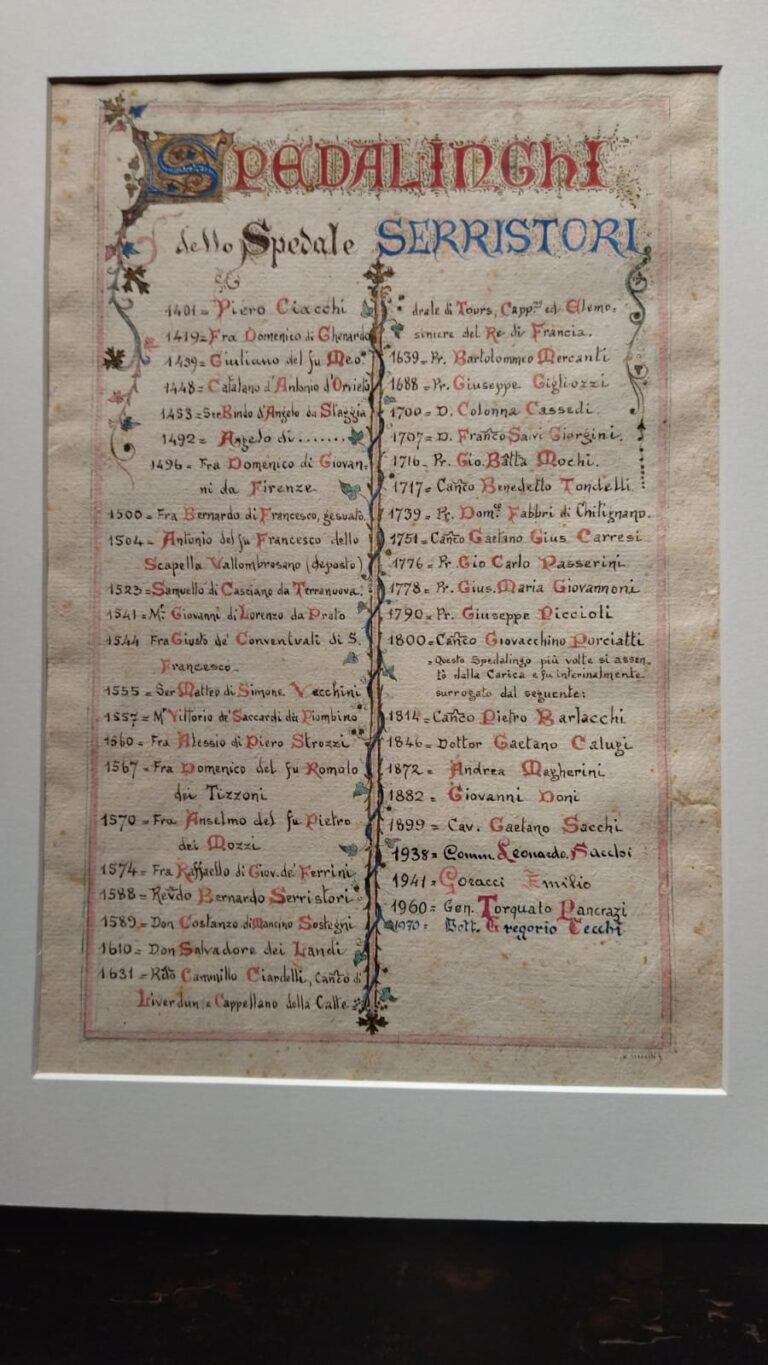 SPEDALINGHI
dello Spedale SERRISTORI
1401 = Piero Ciacchi
1419 = Fra Domenico di Gherardo
1439 = Giuliano del fu Meo.
1448 = Catalano d'Antonio d'Orvieto
1453 = Ser Bindo d'Angelo da Staggia
1492 = Angelo di .......
1496 = Fra Domenico di Giovan.
ni da Firenze
1500 = Fra Bernardo di Francesco, gesuato.
1504 = Antonio del fu Francesco dello
Scapella Vallombrosano (deposto)
1523 = Samuello di Casciano da Terranuova.
1541 = M.º Giovanni di Lorenzo da Prato
1544 Fra Giusto de' Conventuali di S.
Francesco.
1555 = Ser Matteo di Simone Vecchini
1557 = M.º Vittorio de' Saccardi da Piombino
1560 = Fra Alessio di Piero Strozzi
1567 = Fra Domenico del fu Romolo
dei Tizzoni
1570 = Fra Anselmo del fu Pietro
dei Mozzi
1574 = Fra Raffaello di Giov. de' Ferrini
1588 = Rev.do Bernardo Serristori
1589 = Don Costanzo di Mancino Sostegni
1610 = Don Salvadore dei Landi
1631 = R.do Cammillo Ciardelli, Can.co di
Liverdun e Cappellano della Catte
drale di Tours, Capp.no ed Elemo.
siniere del Re di Francia.
1639 = Pr. Bartolommeo Mercanti
1688 = Pr. Giuseppe Gigliozzi
1700 = D. Colonna Cassedi.
1707 = D. Franc.co Salvi Giorgini.
1716 = Pr. Gio. Batta Mochi.
1717 = Can.co Benedetto Tondelli
1739 = Pr. Dom.co Fabbri di Chitignano.
1751 = Can.co Gaetano Gius. Carresi
1776 = Pr. Gio Carlo Passerini
1778 = Pr. Gius. Maria Giovannoni
1790 = Pr. Giuseppe Piccioli
1800 = Can.co Giovacchino Porciatti
= Questo Spedalingo più volte si assen.
tò dalla Carica e fu interinalmente
surrogato dal seguente:
1814 = Can.co Pietro Barlacchi
1846 = Dottor Gaetano Calugi
1872 = Andrea Magherini
1882 = Giovanni Doni
1899 = Cav. Gaetano Sacchi
1938 = Comm. Leonardo Sacchi
1941 = Goracci Emilio
1960 = Gen. Torquato Pancrazi
1970 = Dott. Gregorio Cecchi